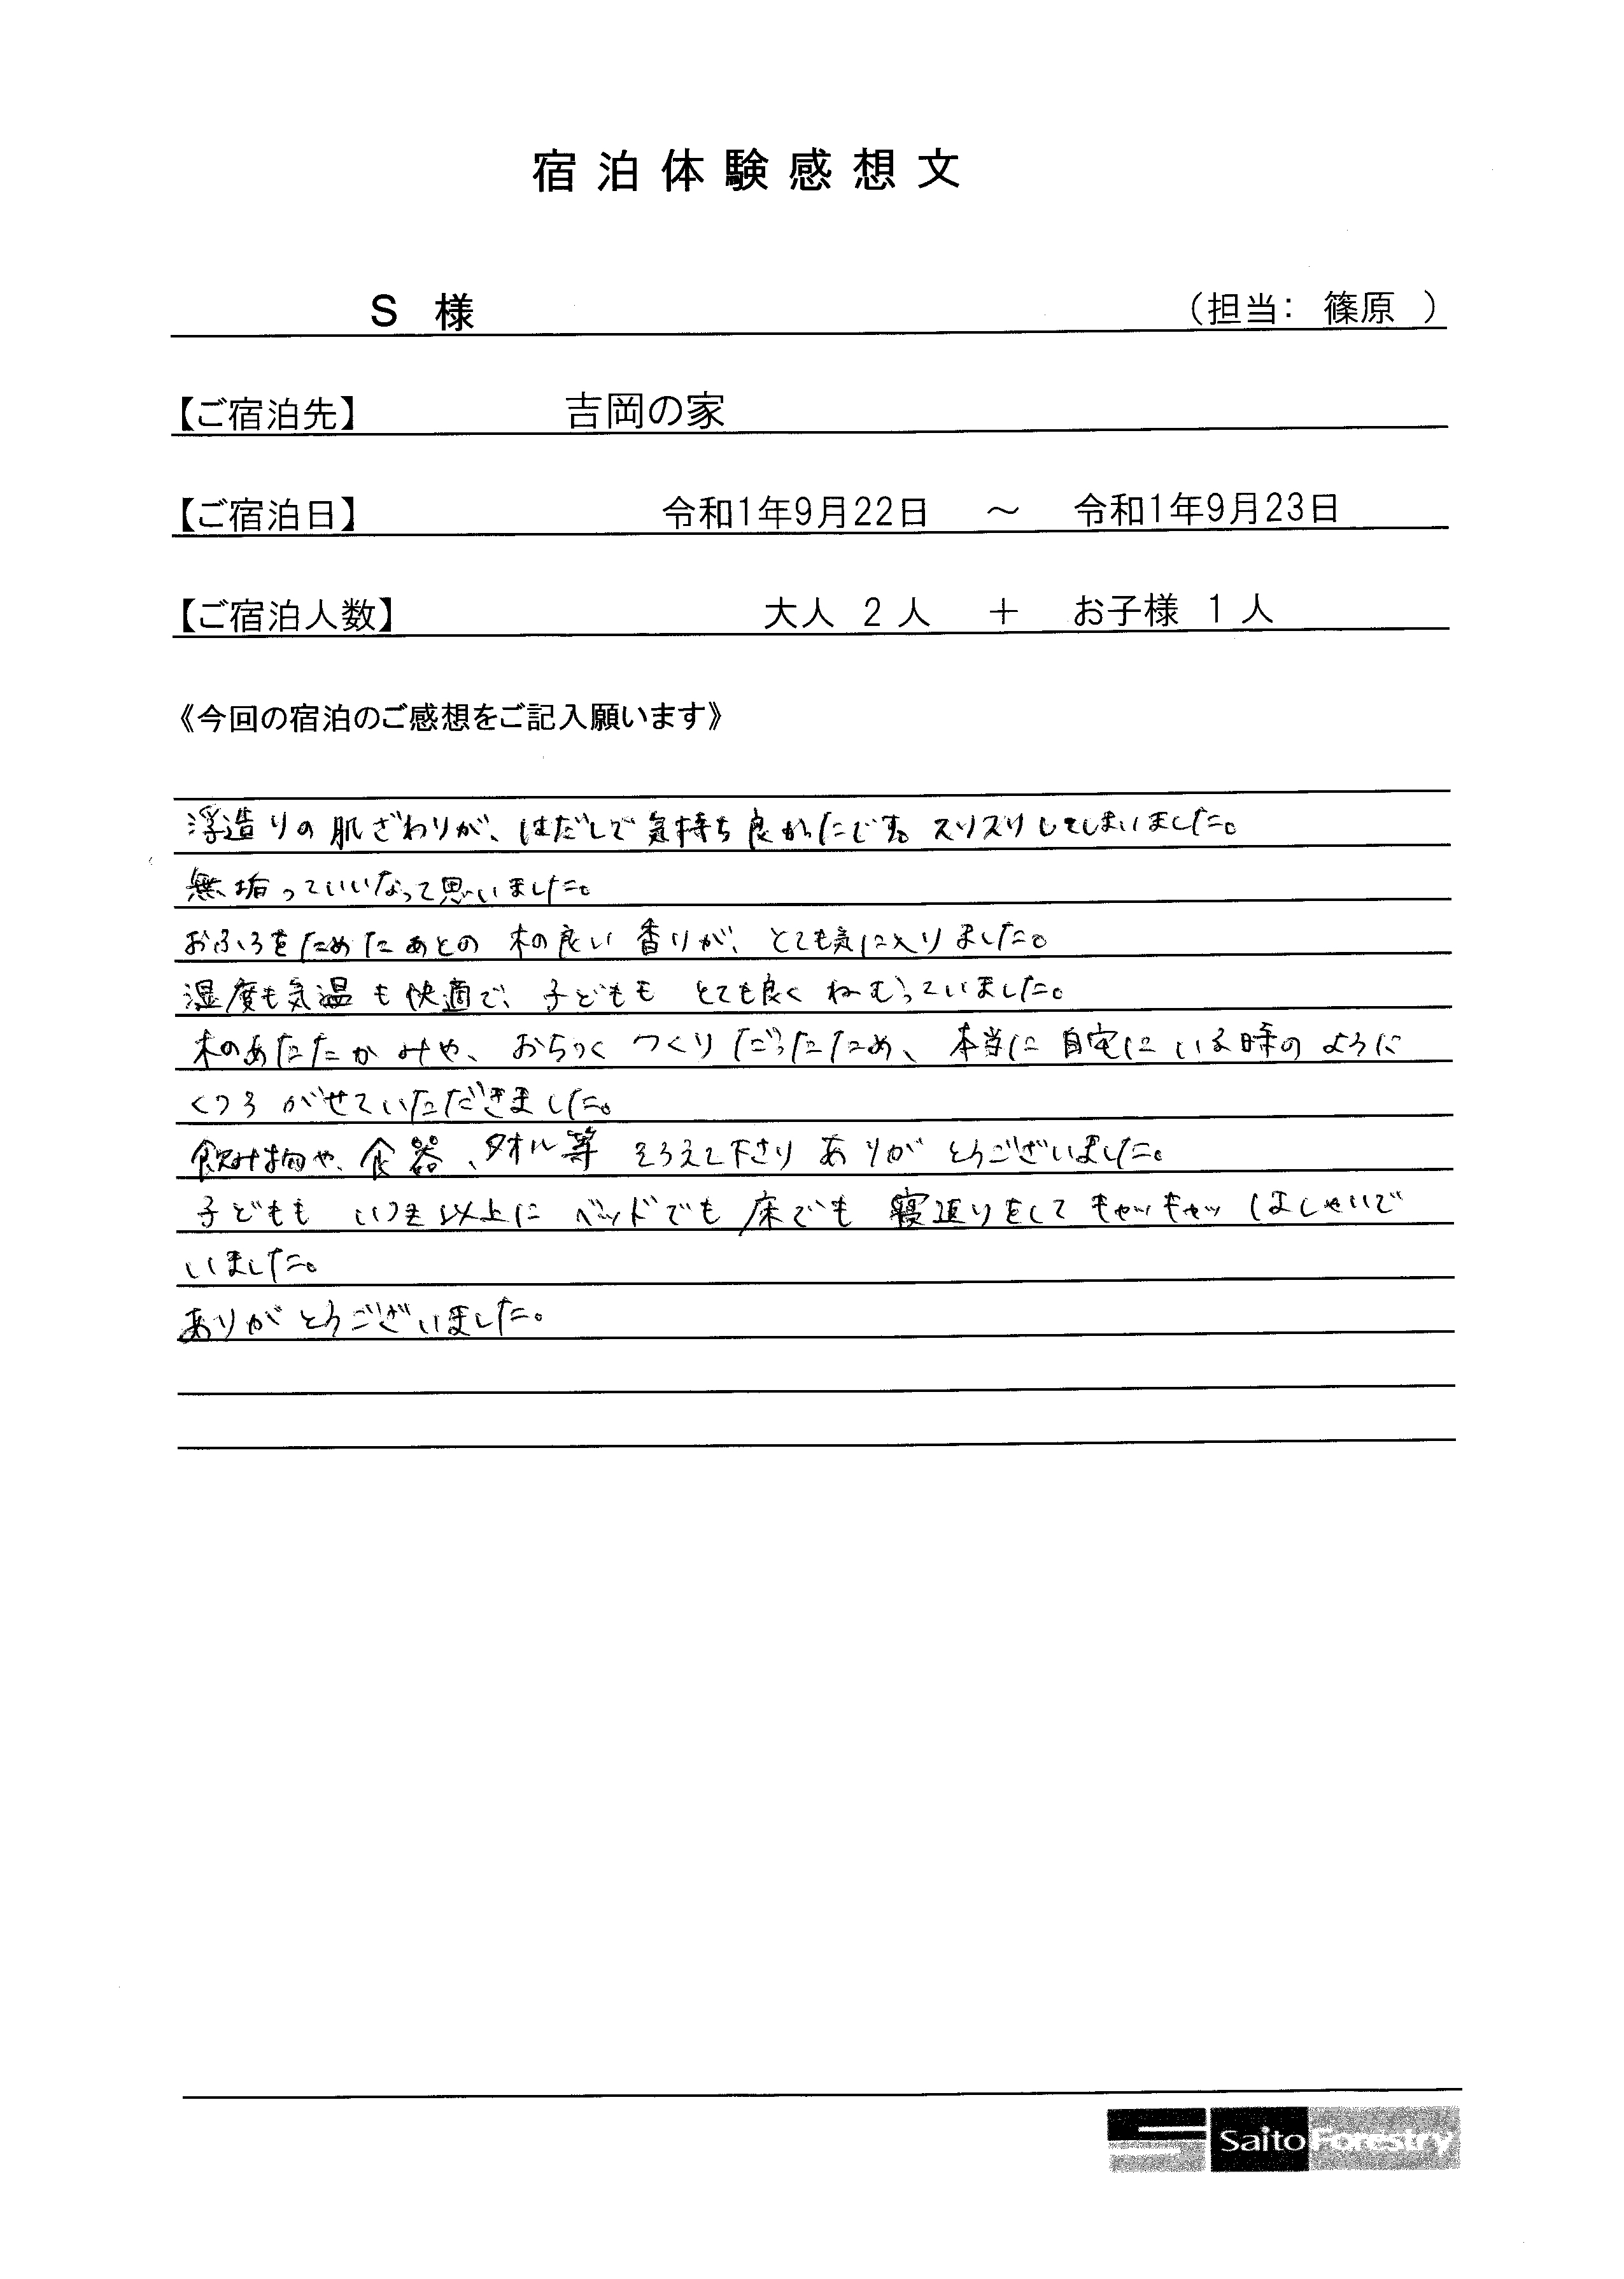 宿泊体験感想文
S 様 （担当： 篠原 ）
【ご宿泊先】 吉岡の家
【ご宿泊日】 令和1年9月22日 ～ 令和1年9月23日
【ご宿泊人数】 大人 2 人 ＋ お子様 1 人
《今回の宿泊のご感想をご記入願います》
浮造りの肌ざわりが、はだしで気持ち良かったです。スリスリしてしまいました。
無垢っていいなって思いました。
おふろをためたあとの木の良い香りが、とても気に入りました。
湿度も気温も快適で、子どももとても良くねむっていました。
木のあたたかみや、おちつくつくりだったため、本当に自宅にいる時のように
くつろがせていただきました。
飲み物や、食器、タオル等そろえて下さりありがとうございました。
子どももいつも以上にベッドでも床でも寝返りをしてキャッキャッはしゃいで
いました。
ありがとうございました。
Saito Forestry